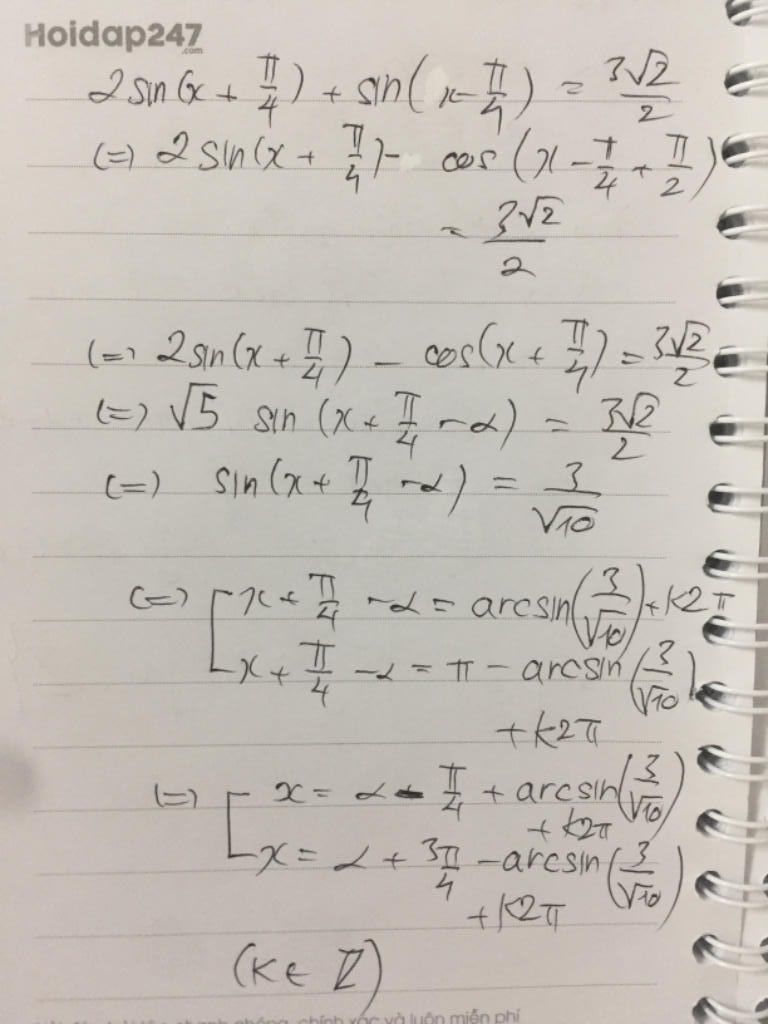 Hoidap247
.com
2sin(x + π/4) + sin(x - π/4) = 3√2/2
(=) 2sin(x + π/4) - cos(x - π/4 + π/2)
= 3√2/2
(=) 2sin(x + π/4) - cos(x + π/4) = 3√2/2
(=) √5 sin(x + π/4 - α) = 3√2/2
(=) sin(x + π/4 - α) = 3/√10
(=) [ x + π/4 - α = arcsin(3/√10) + k2π
x + π/4 - α = π - arcsin(3/√10)
+ k2π
(=) [ x = α - π/4 + arcsin(3/√10)
+ k2π
x = α + 3π/4 - arcsin(3/√10)
+ k2π
(k ∈ Z)
chính xác và luôn miễn phí